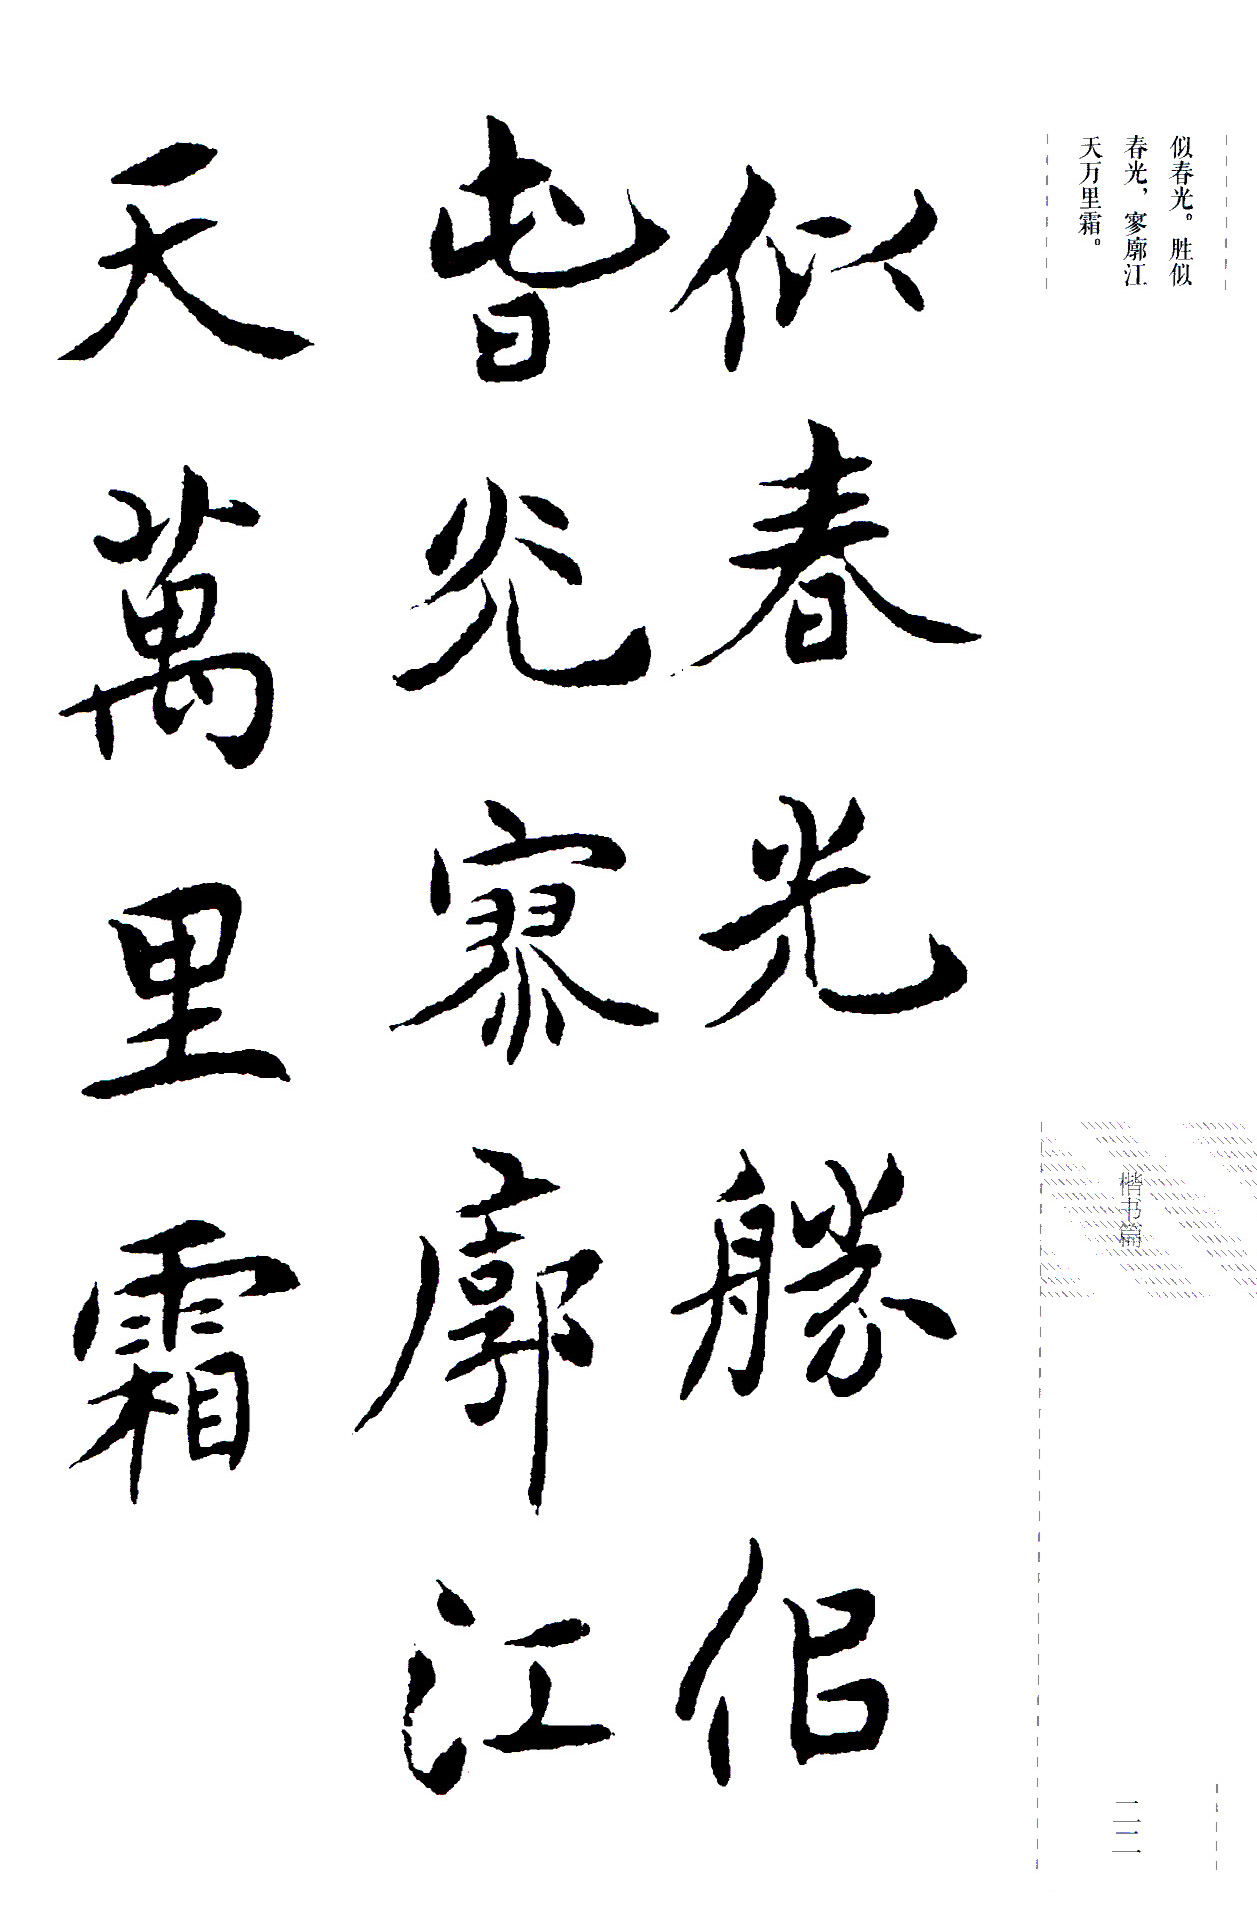 似春光。胜似
春光，寥廓江
天万里霜。
楷书篇
二二
似春光勝佀
旾光寥廓江
天萬里霜